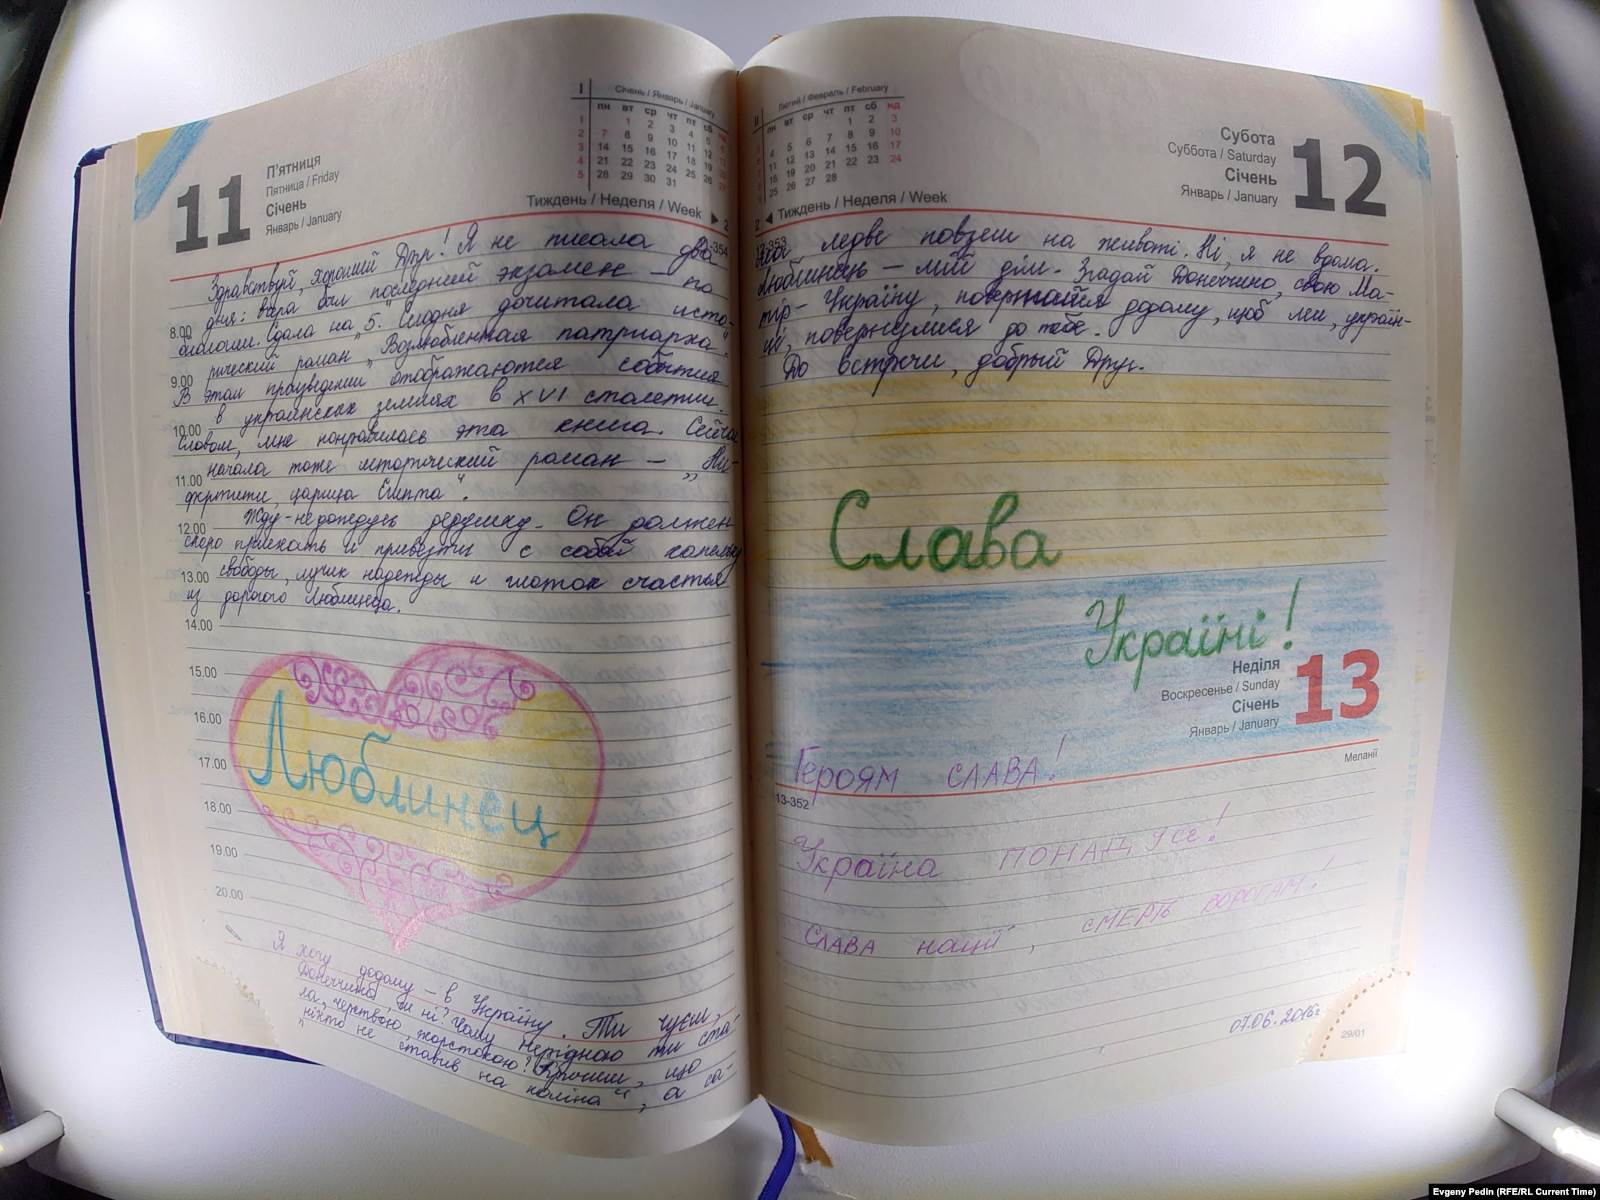 11
П'ятниця
Пятница / Friday
Січень
Январь / January
I
Січень / Январь / January
пн вт ср чт пт сб нд
1 1 2 3 4 5 6
2 7 8 9 10 11 12 13
3 14 15 16 17 18 19 20
4 21 22 23 24 25 26 27
5 28 29 30 31
Тиждень / Неделя / Week ▶ 2
11-354
Здравствуй, хороший Друг! Я не писала два
дня: вчера был последний экзамен – по
8.00
биологии. Сдала на „5". Сегодня дочитала исто-
рический роман „Возлюбленная патриарха".
9.00
В этом произведении отображаются события
в украинских землях в XVI столетии.
10.00
Словом, мне понравилась эта книга. Сейчас
начала тоже исторический роман – „Не-
11.00
фертити, царица Египта".
Жду-недождусь дедушку. Он должен
12.00
скоро приехать и привезти с собой капельку
свободы, лучик надежды и глоток счастья
13.00
из дорогого Люблинца.
14.00
15.00
16.00
17.00
18.00
19.00
20.00
Люблинец
Я хочу додому – в Україну. Ти чуєш,
Донеччино, чи ні? Чому нерідною ти ста-
ла, черствою, жорстокою? Кричиш, що
„ніхто не ставив на коліна", а са-
II
Лютий / Февраль / February
пн вт ср чт пт сб нд
1 2 3
4 5 6 7 8 9 10
11 12 13 14 15 16 17
18 19 20 21 22 23 24
25 26 27 28
2 ◀ Тиждень / Неделя / Week
Субота
Суббота / Saturday
Січень
Январь / January
12
12-353
ма ледве повзеш на животі. Ні, я не вдома.
Люблинець – мій дім. Згадай Донеччино, свою Ма-
тір – Україну, повертайся додому, щоб ми, україн-
ці, повернулися до тебе.
До встречи, добрый Друг.
Слава
Україні!
Неділя
Воскресенье / Sunday
Січень
Январь / January
13
Меланії
Героям слава!
13-352
Україна понад усе!
Слава нації, смерть ворогам!
07.06.2016г
29/01
Evgeny Pedin (RFE/RL Current Time)